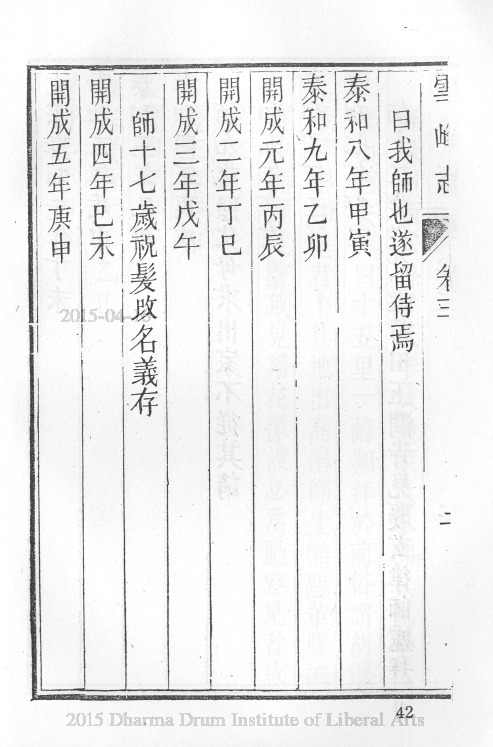 雪峰志 卷三 二
日我師也遂留侍焉
泰和八年甲寅
泰和九年乙卯
開成元年丙辰
開成二年丁巳
開成三年戊午
師十七歲祝髮改名義存
開成四年巳未
開成五年庚申
42
2015 Dharma Drum Institute of Liberal Arts